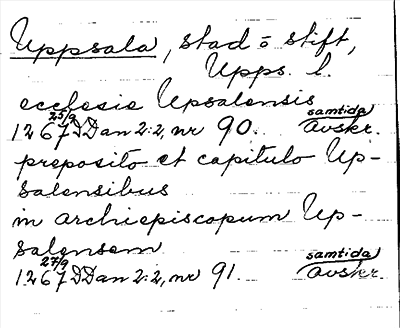 Uppsala, stad o stift,
Upps. l.
ecclesie Upsalensis
1267 25/9 DDan 2:2, nr 90. samtida avskr.
preposito et capitulo Up-
salensibus
in archiepiscopum Up-
salensem
1267 27/9 DDan 2:2, nr 91. samtida avskr.